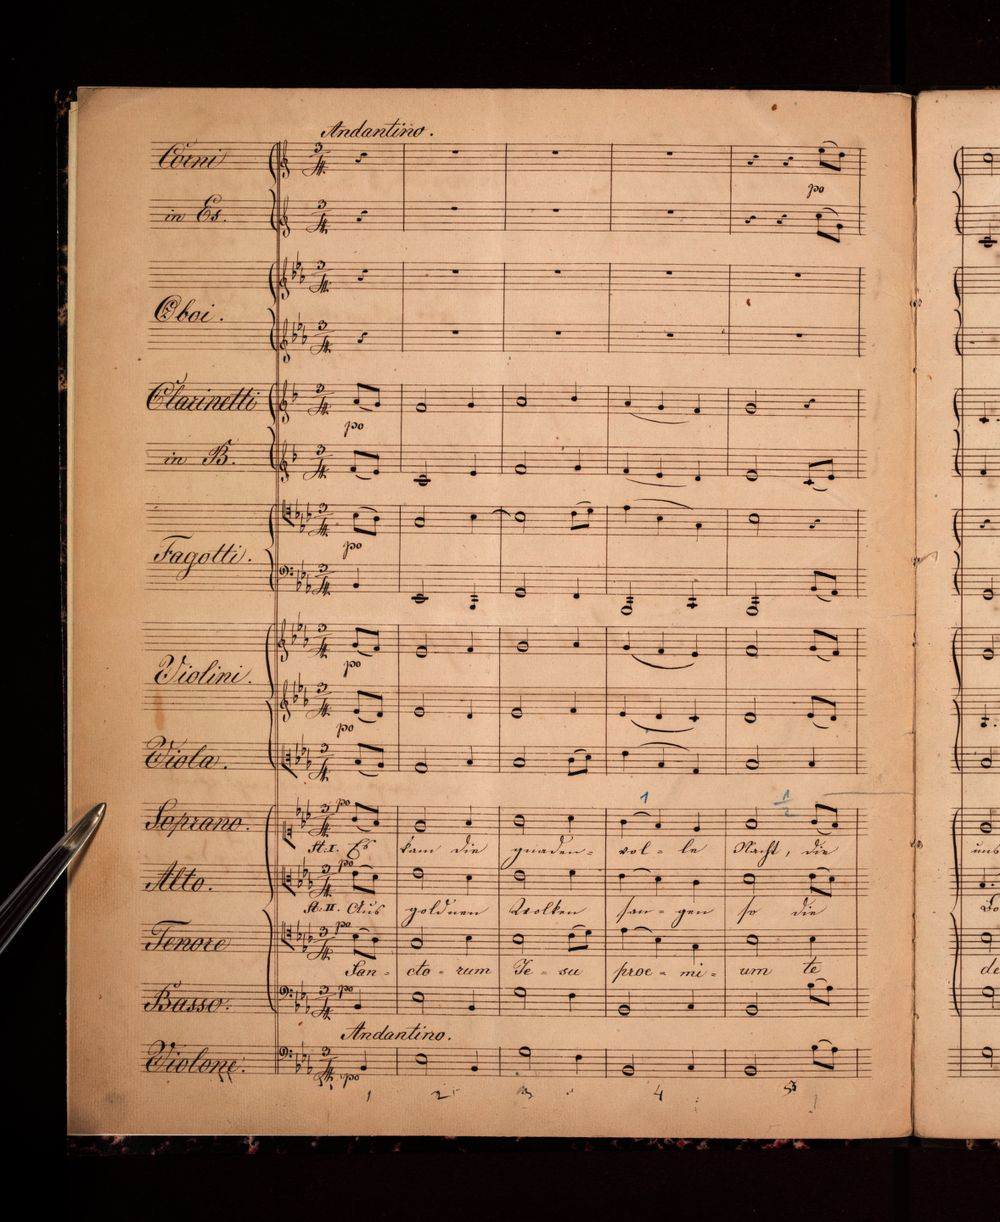 Andantino.
Corni
po
in Es.
Oboi.
Clarinetti
po
in B.
po
Fagotti.
Violini.
po
po
Viola.
1
1/2
Soprano.
po
St. I. Es kam die gnaden- vol- le Nacht, die
uns
Alto.
po
St. II. Aus goldnen Wolken san- gen so die
Tenore
po
San- cto- rum Je- su proe- mi- um te
de
Basso.
po
Andantino.
Violone.
po
1 2 3 4 5